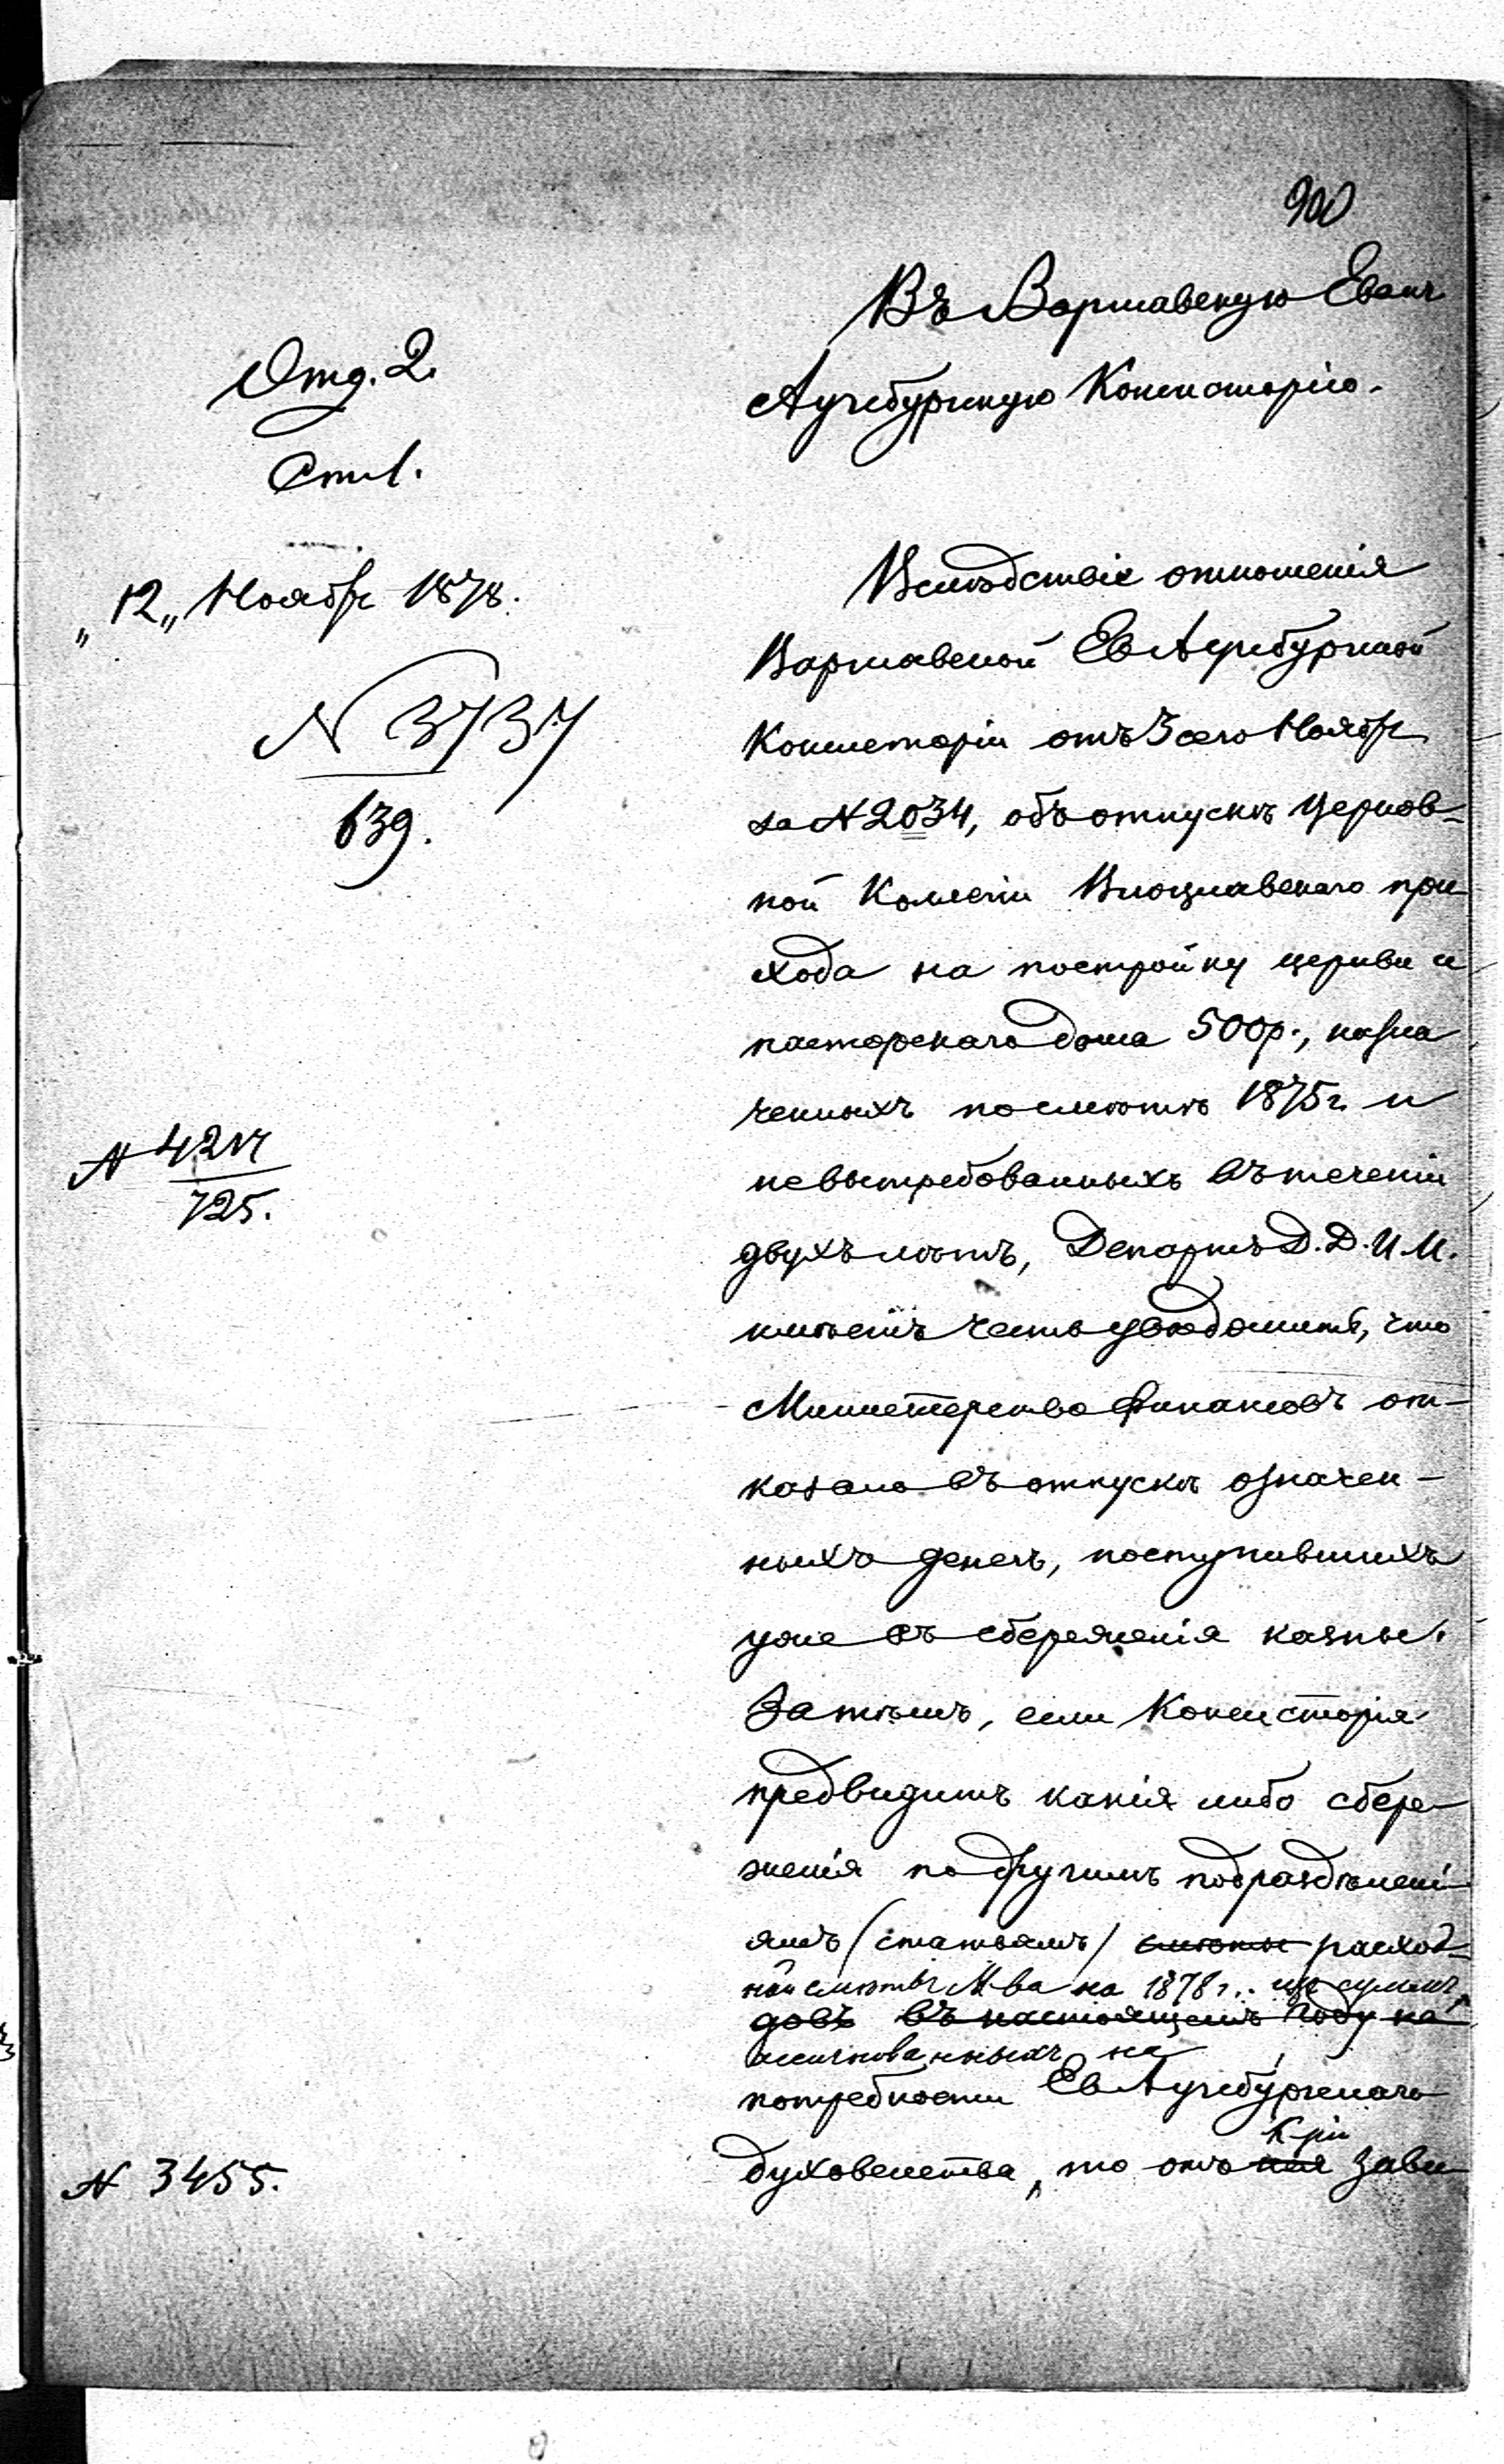 900
Въ Варшавскую Еванг.
Аугсбургскую Консисторію.
Отд. 2.
Ст. 1.
„12„ Ноября 1878.
N 3737
639.
N 4217
725.
N 3455.
Вслѣдствіе отношенія
Варшавской Ев Аугсбургской
Консисторіи отъ 3 сего Ноября
за N 2034, объ отпускѣ Церков-
ной Коллегіи Влоцлавскаго при
хода на постройку церкви и
пасторскаго дома 500 р., назна
ченныхъ по смѣтѣ 1875 г. и
невытребованныхъ въ теченіи
двухъ лѣтъ, Департъ Д. Д. И. И.
имѣетъ честь увѣдомить, что
Министерство Финансовъ от-
казало въ отпускѣ означен-
ныхъ денегъ, поступившихъ
уже въ сбереженія казны.
Затѣмъ, если Консисторія
предвидитъ какія либо сбере-
женія по другимъ подраздѣлені-
ямъ (статьямъ) смѣты расход-
ной смѣты М-ва на 1878 г. изъ суммъ,
довъ въ настоящемъ году на
ассигнованныхъ на
потребности Ев Аугсбургскаго
К-ріи
духовенства, то отъ нея зави